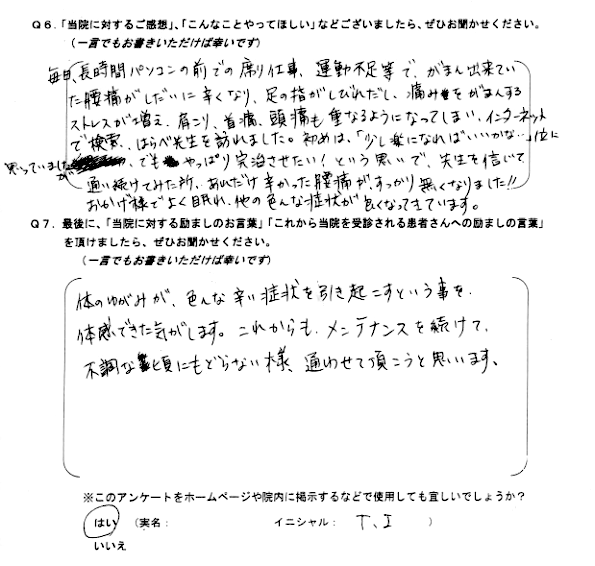 Q6.「当院に対するご感想」、「こんなことやってほしい」などございましたら、ぜひお聞かせください。
(一言でもお書きいただけば幸いです)
毎日、長時間パソコンの前での座り仕事、運動不足等で、がまん出来てい
た腰痛がしだいに辛くなり、足の指がしびれだし、痛みをがまんする
ストレスが増え、肩こり、首痛、頭痛も重なるようになってしまい、インターネット
で検索、はらべ先生を訪れました。初めは、「少し楽になればいいかな…」位に
思っていましたが、でもやっぱり完治させたい!という思いで、先生を信じて
通い続けてみた所、あれだけ辛かった腰痛が、すっかり無くなりました!!
おかげ様でよく眠れ、他の色んな症状が良くなってきています。
Q7.最後に、「当院に対する励ましのお言葉」「これから当院を受診される患者さんへの励ましの言葉」
を頂けましたら、ぜひお聞かせください。
(一言でもお書きいただけば幸いです)
体のゆがみが、色んな辛い症状を引き起こすという事を、
体感できた気がします。これからも、メンテナンスを続けて、
不調な頃にもどらない様、通わせて頂こうと思います、
※このアンケートをホームページや院内に掲示するなどで使用しても宜しいでしょうか?
はい (実名: イニシャル: T、I )
いいえ